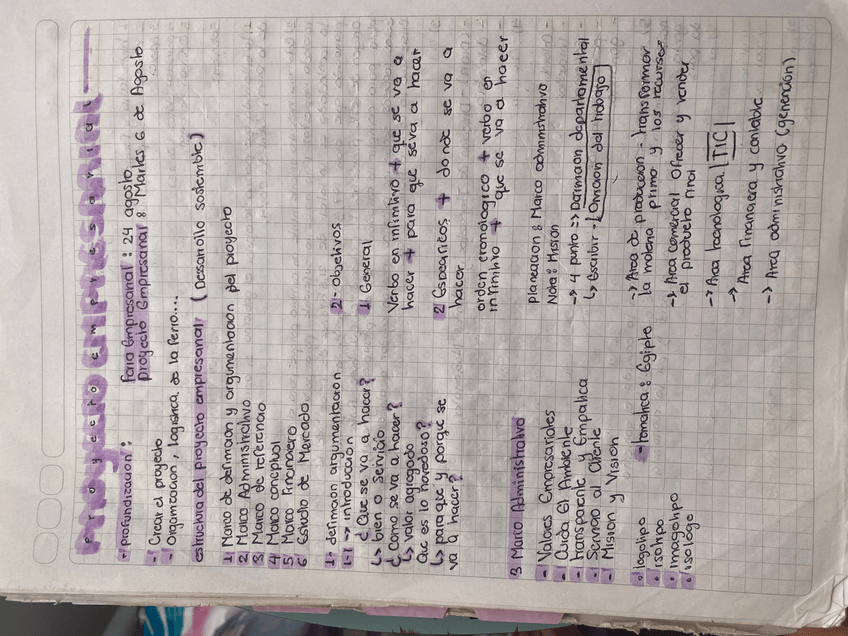 Proyecto empresarial
- profundización:
Feria Empresarial: 24 agosto
proyecto Empresarial: Martes 6 de Agosto
- Crear el proyecto
- Organización, logistica, de la feria...
estructura del proyecto empresarial (Desarrollo sostenible)
1 Marco de definición y argumentación del proyecto
2 Marco Administrativo
3 Marco de referencia
4 Marco conceptual
5 Marco Financiero
6 Estudio de Mercado
1- definición argumentación
1-1 → introducción
¿Que se va a hacer?
↳ bien o servicio
¿como se va a hacer?
↳ valor agregado
Que es lo novedoso?
↳ para que y porque se
va a hacer?
2- objetivos
1 General
Verbo en infinitivo + que se va a
hacer + para que se va a hacer
2 Especificos + donde se va a
hacer
orden cronologico + verbo en
infinitivo + que se va a hacer
3 Marco Administrativo
- Valores Empresariales
- Cuida El Ambiente
- transparente y Empatica
- Servicio al cliente
- Mision y Visión
planeación: Marco administrativo
Nota: Mision
→ 4 punto => Definición departamental
↳ Escribir - División del trabajo
• logotipo
• isotipo
• Imagotipo
• isologo
- tematica: Egipto
→ Area de producción - transformar
la materia prima y los recursos
→ Area comercial ofrecer y vender
el producto final
→ Area tecnologica TIC
→ Area Financiera y contable
→ Area administrativo (generación)